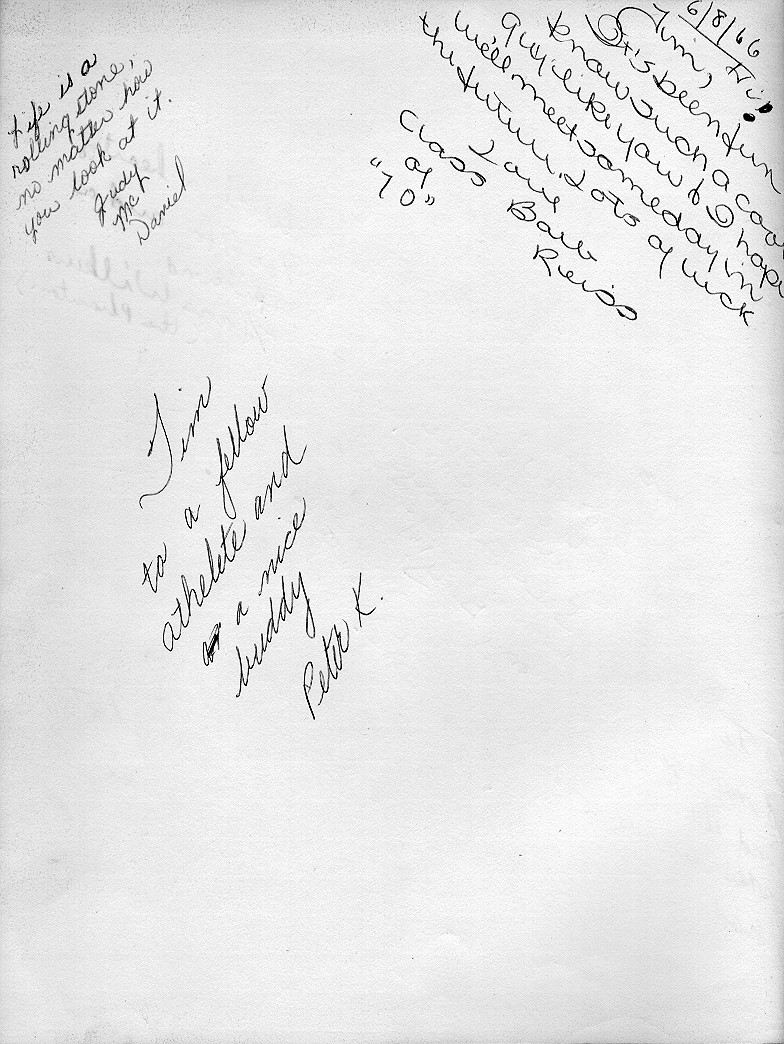 Life is a
rolling stone,
no matter how
you look at it.
Judy
Mc
Daniel
6/8/66
Tim, Hi!
It's been fun
know such a cool
guy like yaw & I hope
we'll meet someday in
the future. Lots of luck
Love
Barb
Reiss
Class
of
"70"
Tim
to a fellow
athelete and
a nice
buddy
Peter K.